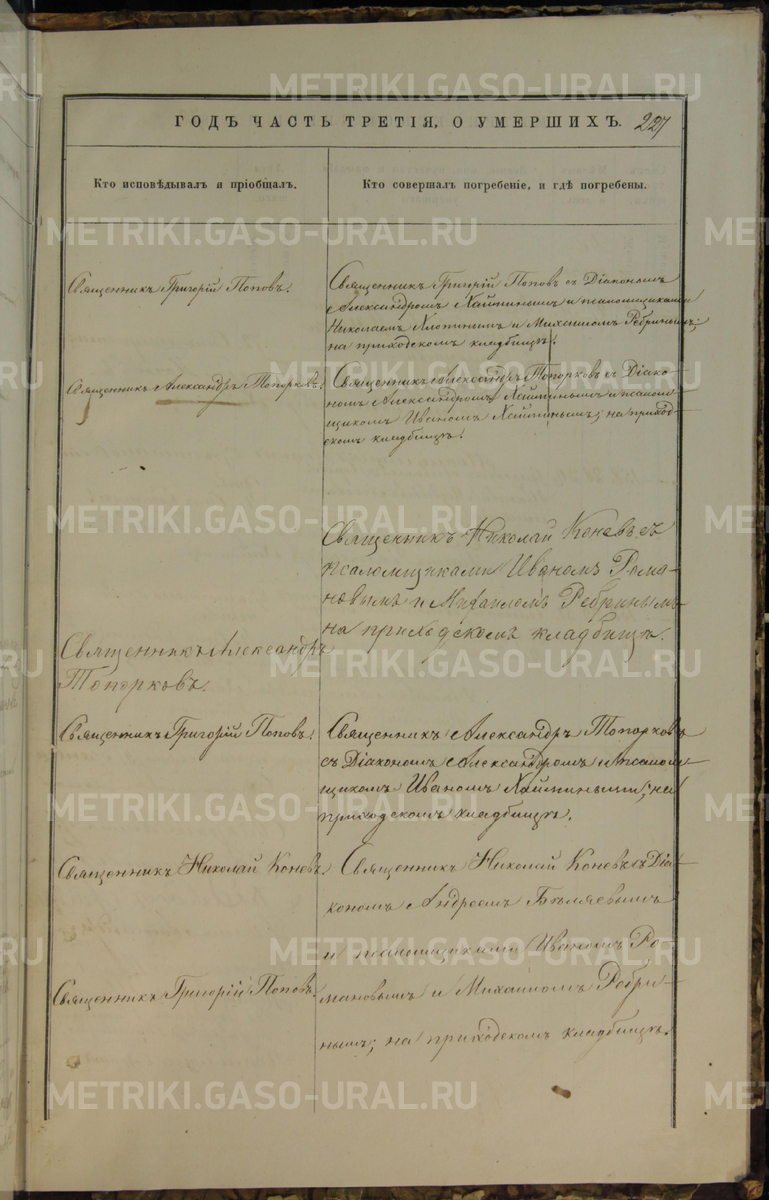 ГОДЪ ЧАСТЬ ТРЕТІЯ, О УМЕРШИХЪ.
227
Кто исповѣдывалъ и пріобщалъ.
Кто совершалъ погребеніе, и гдѣ погребены.
Священникъ Григорій Поповъ.
Священникъ Григорій Поповъ съ Діакономъ
Александромъ и псаломщиками
Николаемъ и Михаиломъ Ребринымъ;
на приходскомъ кладбищѣ.
Священникъ Александръ Топорковъ.
Священникъ Александръ Топорковъ съ Діако-
номъ Александромъ и псалом-
щикомъ Иваномъ на приход-
скомъ кладбищѣ.
Священникъ Николай Коневъ съ
псаломщиками Иваномъ Рома-
новымъ и Михаиломъ Ребринымъ
на приходскомъ кладбищѣ.
Священникъ Александръ
Топорковъ.
Священникъ Григорій Поповъ.
Священникъ Александръ Топорковъ
съ Діакономъ Александромъ и псалом-
щикомъ Иваномъ на
приходскомъ кладбищѣ.
Священникъ Николай Коневъ.
Священникъ Николай Коневъ съ Діа-
кономъ Андреемъ Бѣляевымъ
и псаломщиками Иваномъ Ро-
мановымъ и Михаиломъ Ребри-
нымъ; на приходскомъ кладбищѣ.
Священникъ Григорій Поповъ.
METRIKI.GASO-URAL.RU